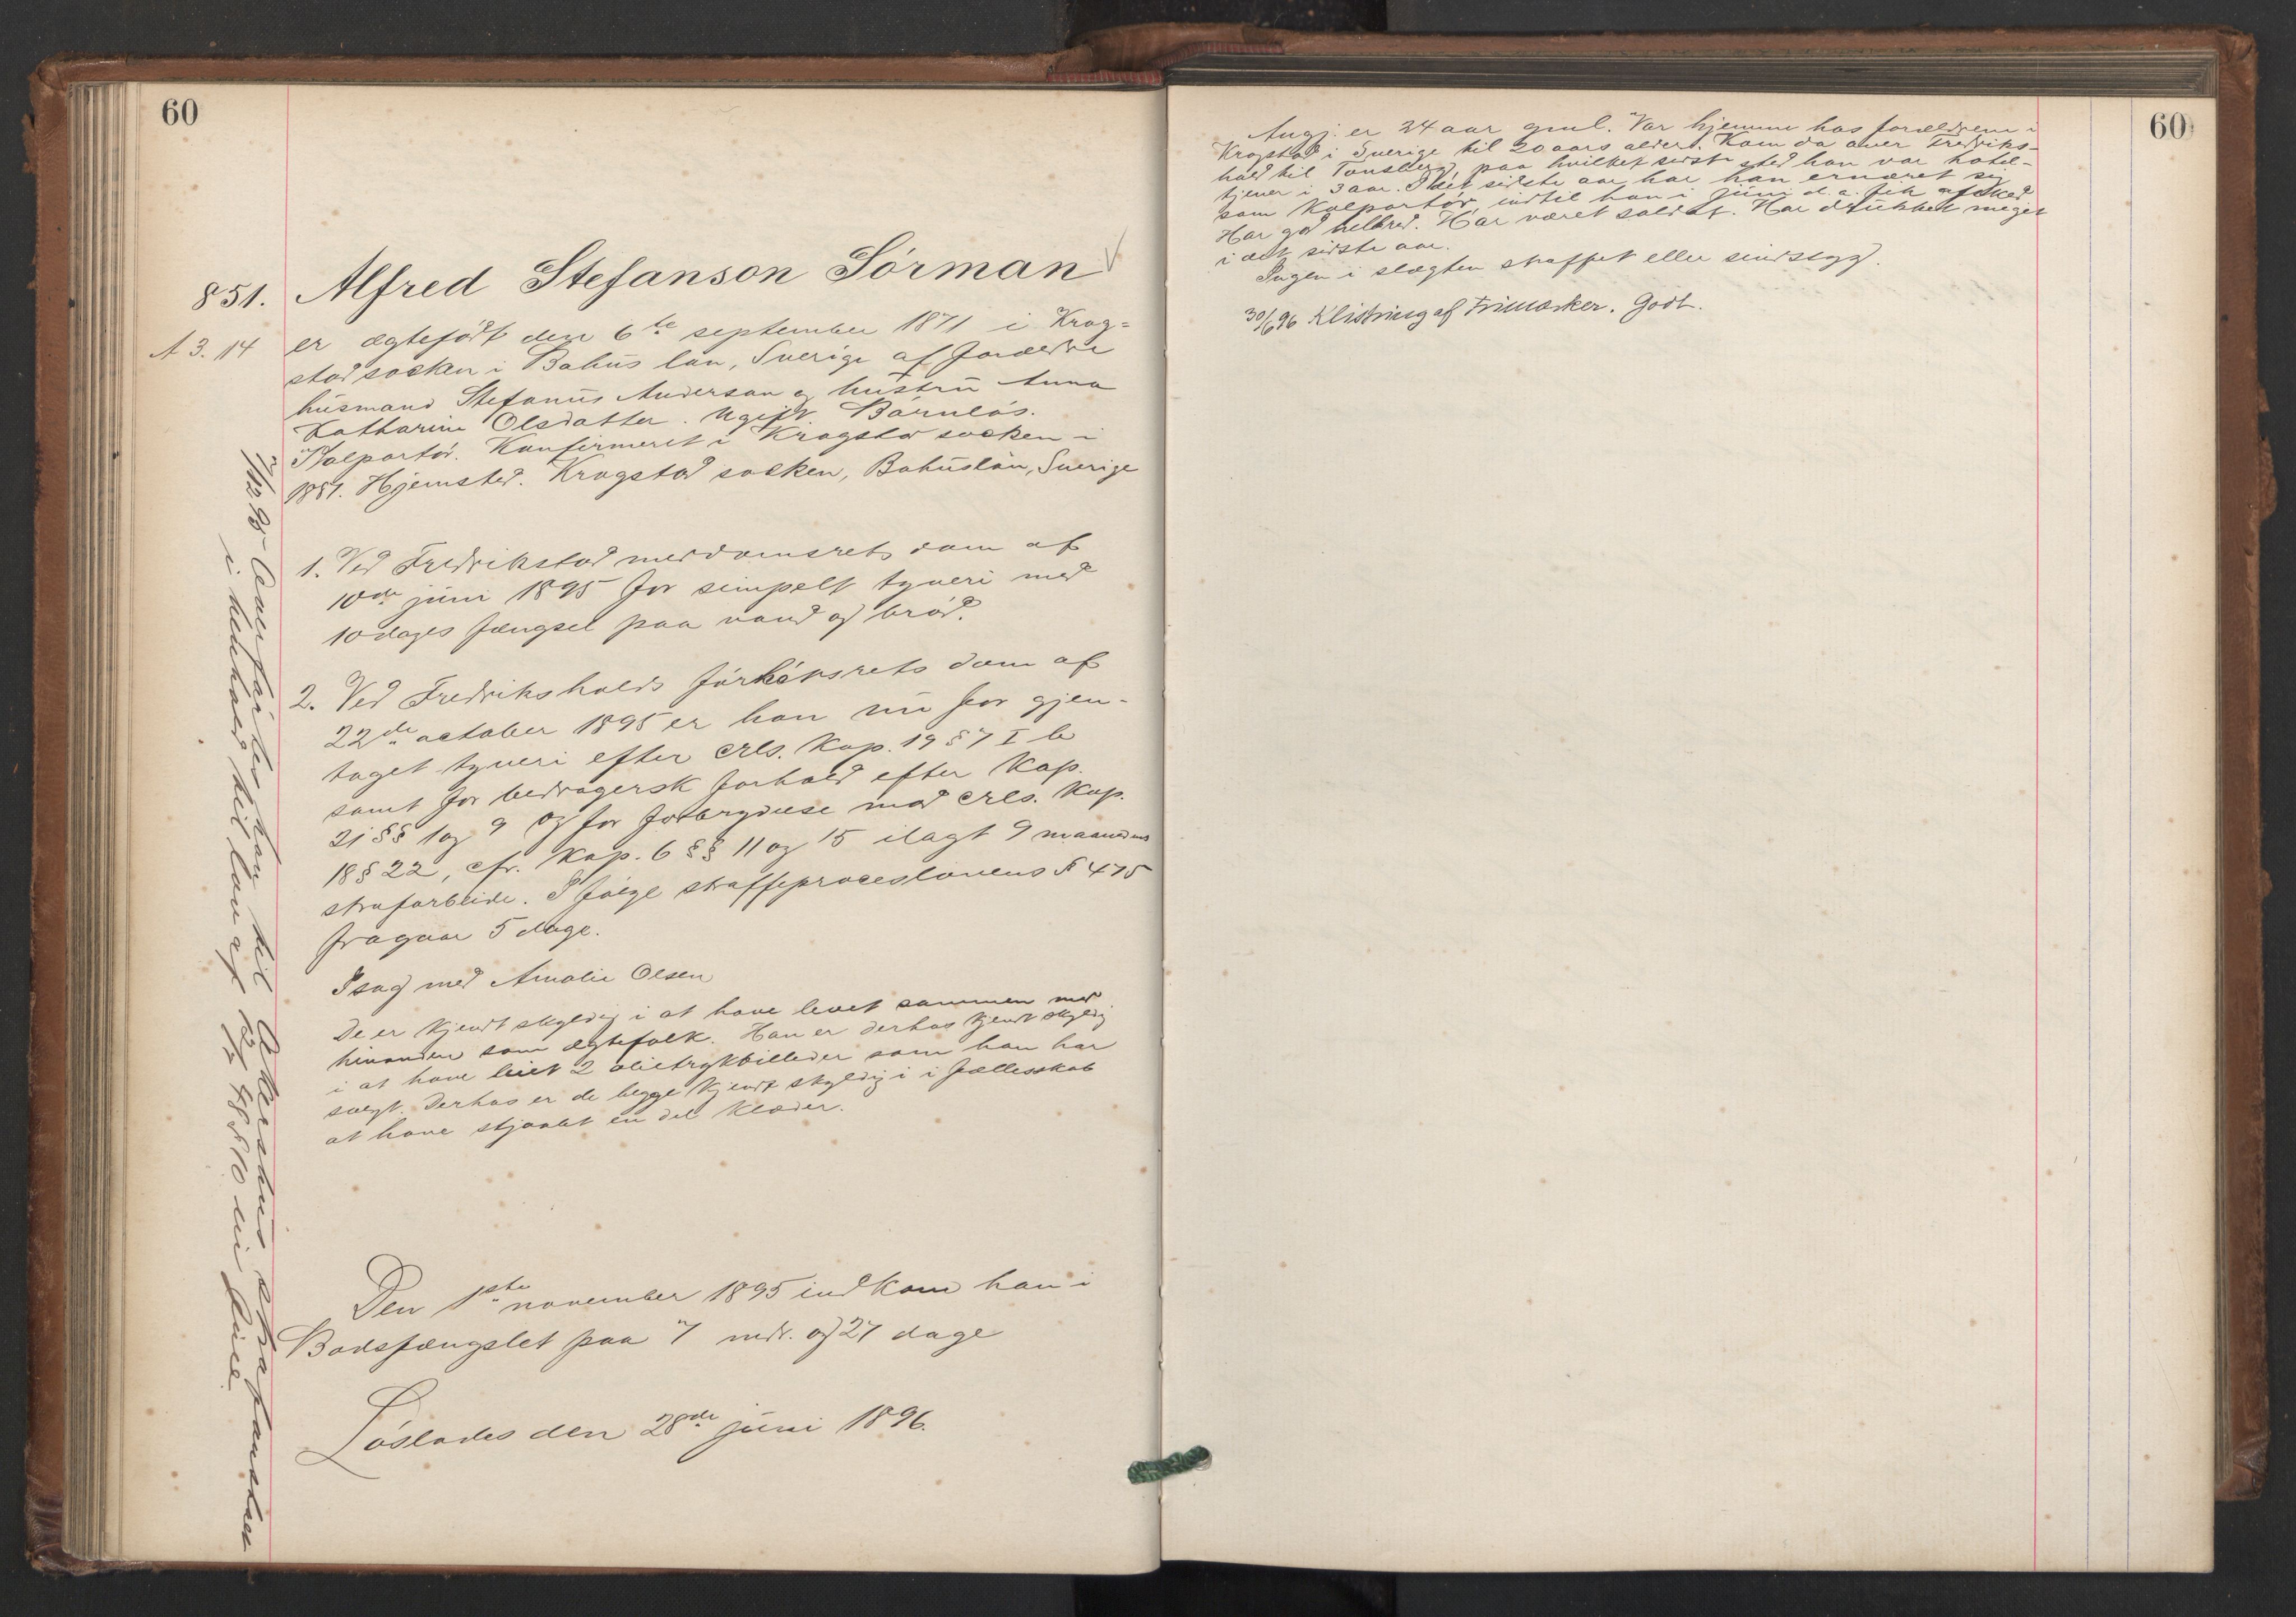 60
851. Alfred Stefanson Sörman
A 3. 14
er ægtefödt den 6te september 1871 i Krog=
stad socken i Bahus län, Sverige af forældre
husmand Stefanus Anderson og hustru Anna
Katharina Olsdatter. Ugift. Börnlös.
Kolportör. Konfirmeret i Krogstad socken i
1887. Hjemsted. Krogstad socken, Bohuslän, Sverige
1. Ved Fredrikstad meddomsrets dom af
10de juni 1895 for simpelt tyveri med
10 dages fængsel paa vand og bröd.
2. Ved Fredrikshalds forhörsrets dom af
22de october 1895 er han nu for gjen-
taget tyveri efter crls. Kap. 19 § 7 I b
samt for bedragersk forhold efter Kap.
21 §§ 1 og 9 og for forbrydelse mod crls. Kap.
18 § 22, cfr. Kap. 6 §§ 11 og 15 ilagt 9 maaneders
strafarbeide. I fölge straffeproceslovens § 475
fragaar 5 dage.
I sag med Amalie Olsen
De er kjendt skyldig i at have levet sammen med
hinanden som ægtefolk. Han er derhos kjendt skyldig
i at have leiet 2 olietrykbilleder som han har
solgt. Derhos er de begge kjendt skyldig i i fællesskab
at have stjaalet en del klæder.
Den 1ste november 1895 indkom han i
Bodsfængslet paa 7 mdr. og 27 dage
Löslades den 28de juni 1896.
7/12 95 Overförtes han til Akershus strafanstalt
i henhold til lov af § 10 in fine.
60
Angj. er 24 aar gml. Var hjemme hos forældrene i
Krogstad i Sverige til 20 aars alder. Kom da over Fredriks-
hald til Tönsberg, paa hvilket sidste sted han var hotel-
tjener i 3 aar. I det sidste aar har han ernæret sig
som Kolportör, indtil han i juni d. a. fik afsked
Har god helbred. Har været soldat. Har drukket meget
i det sidste aar.
Ingen i slægten straffet eller sindssyg.
30/6 96 Klistring af Frimærker. Godt.